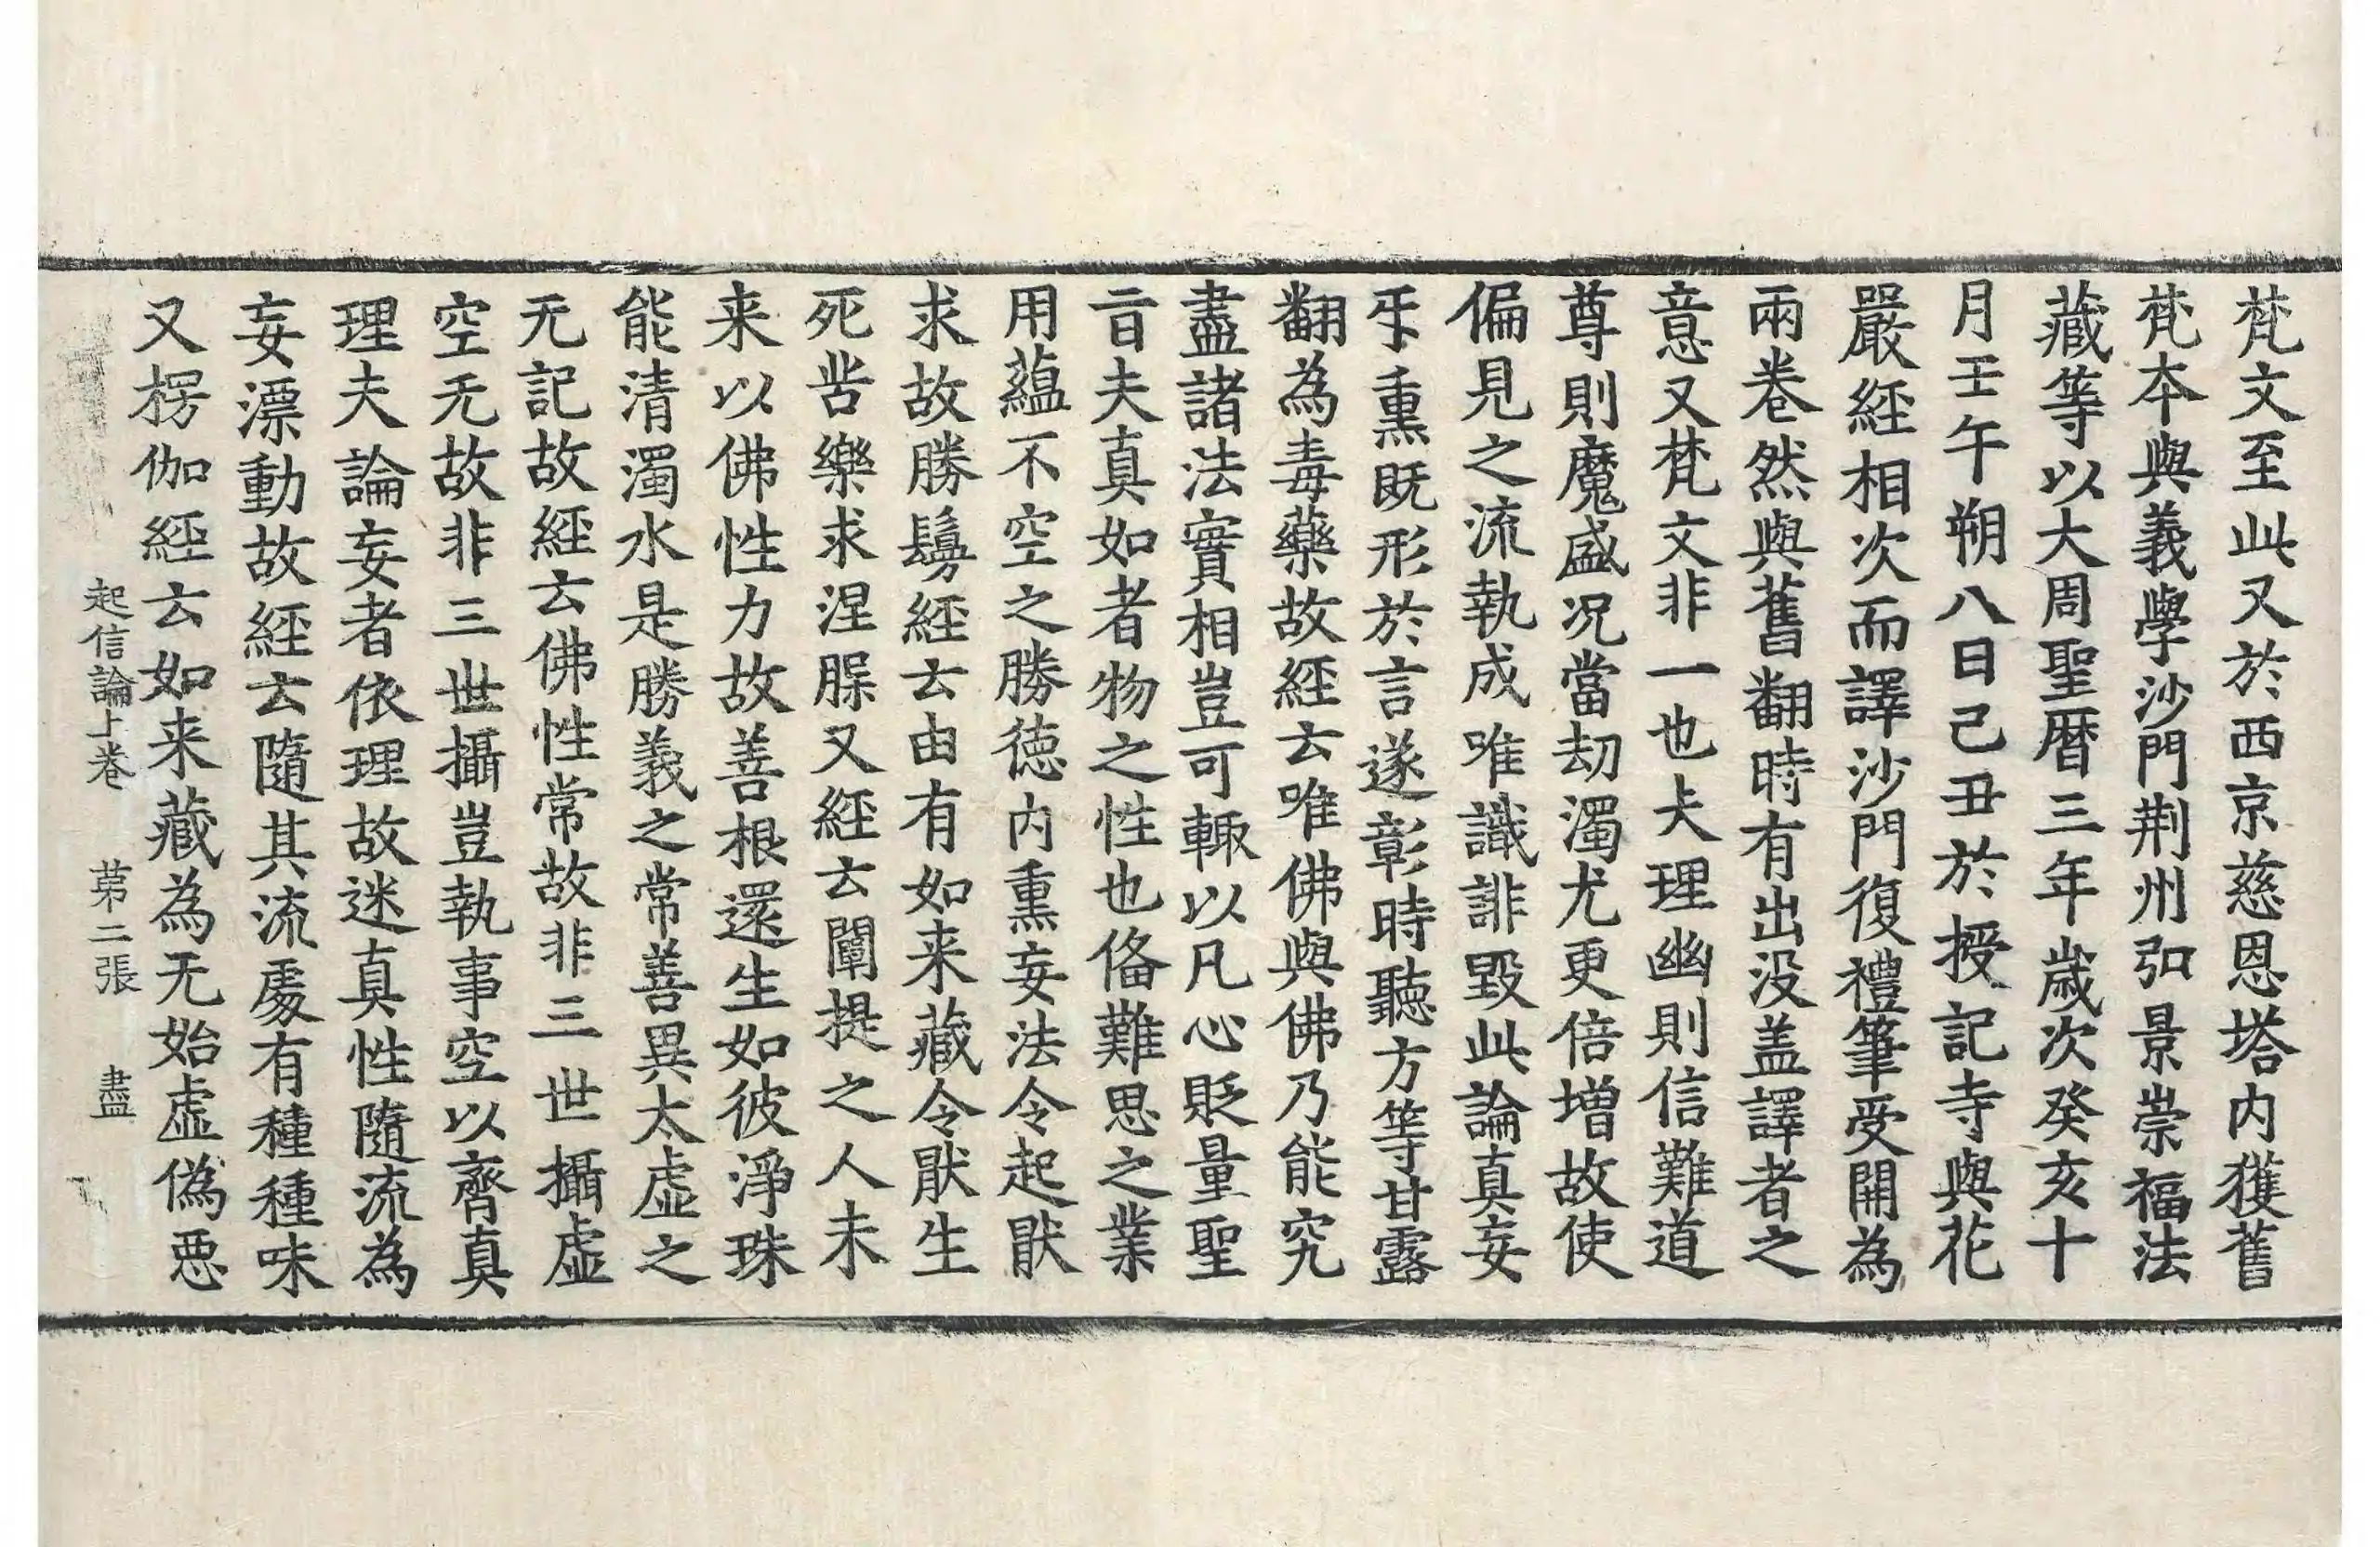 梵文至此又於西京慈恩塔内獲舊
梵本與義學沙門荆州弘景崇福法
藏等以大周聖曆三年歲次癸亥十
月壬午朔八日己丑於授記寺與花
嚴經相次而譯沙門復禮筆受開為
兩卷然與舊翻時有出没盖譯者之
意又梵文非一也夫理幽則信難道
尊則魔盛况當劫濁尤更倍增故使
偏見之流執成唯識誹毀此論真妄
㸦熏既形於言遂彰時聽方等甘露
翻為毒藥故經云唯佛與佛乃能究
盡諸法實相豈可輙以凡心貶量聖
旨夫真如者物之性也俻難思之業
用藴不空之勝徳内熏妄法令起猒
求故勝鬘經云由有如来藏令猒生
死苦樂求涅槃又經云闡提之人未
来以佛性力故善根還生如彼淨珠
能清濁水是勝義之常善異太虛之
无記故經云佛性常故非三世攝虛
空无故非三世攝豈執事空以齊真
理夫論妄者依理故迷真性隨流為
妄漂動故經云隨其流處有種種味
又楞伽經云如来藏為无始虛偽惡
起信論上卷 苐二張 盡